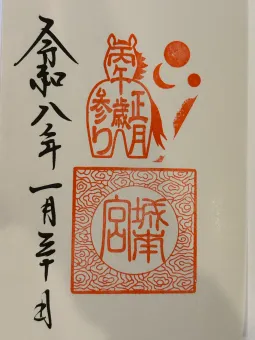 丙午歳
正月
参り
城南宮
令和八年一月三十日